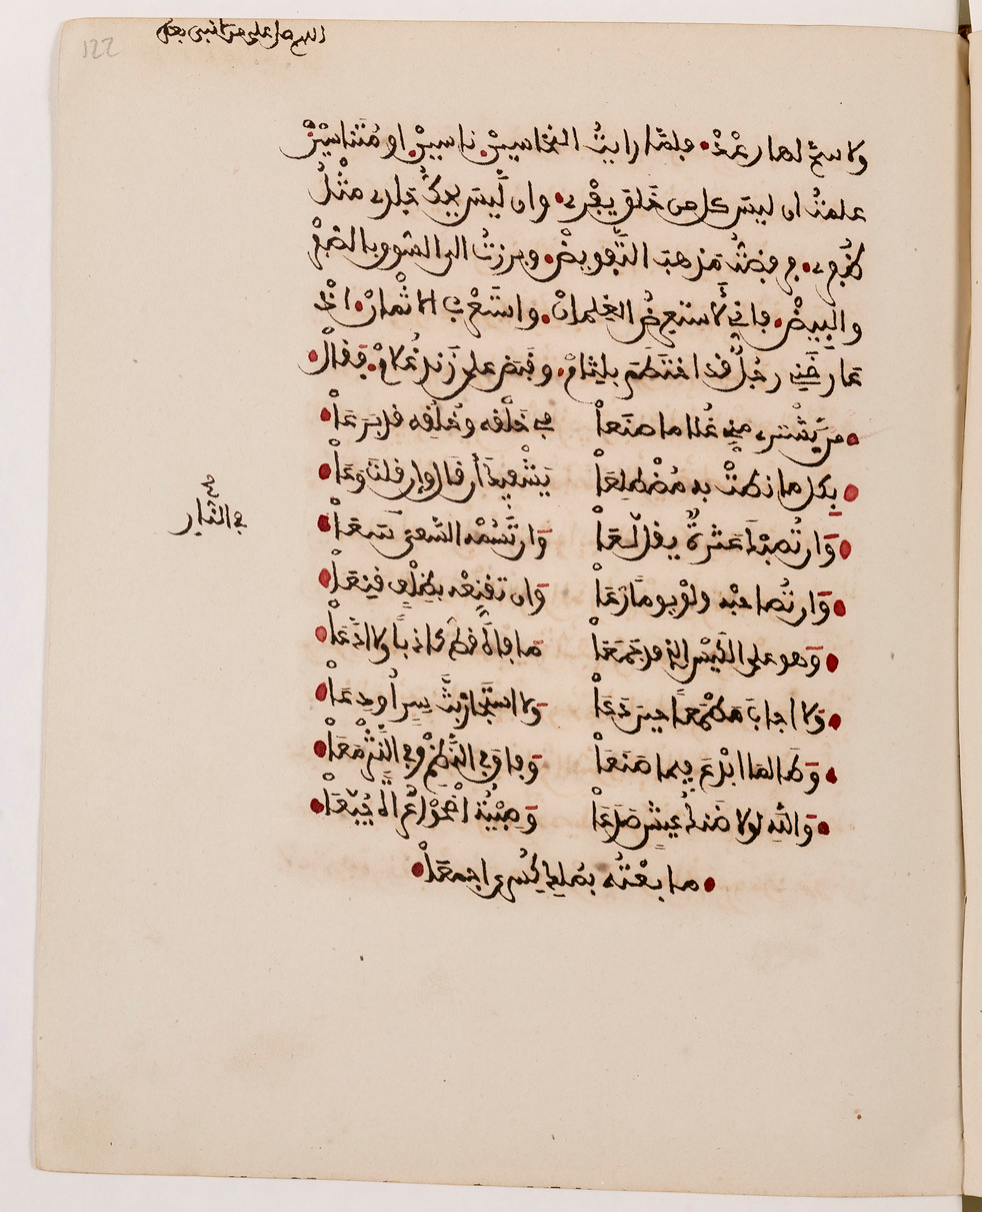 اللهم صل على من لا نبي بعده
122
ولا سحّ لها رعْدْ. فلمّا رايتُ النخاسينْ ناسينْ او مُتناسِينْ
علمتُ ان ليسَ كل من خَلق يفْرِي. وان لَّيسَ يحكُّ جلدِي مثْلُ
ظُفُرِي. فرفضتُ مذهبَ التَّفويضْ. وبرزتُ الى السّوق بالصُفْرْ
والبِيضْ. فإنّي لَأستعرضُ الغِلمانْ. واستعْرفُ الاثْمانْ. اذْ
عارَضَني رجُلٌ قد اختَطَمَ بلِثامْ. وقبَضَ على زَندِ غُلامْ. فقالْ.
من يَّشْتَرِي منّي غُلاما صنَعاْ في خَلْقه وخُلُقِه قد بَرعَاْ
بكل ما نُطتُّ به مُضْطلِعَاْ يَشْفِيكَ ان قال وان قلتَ وَعَاْ
وَان تُصِبْكَ عَثْرةٌ يقل لّعَاْ وَان تَسُمْه السّعيَ سَعَاْ
صح
في النّار
وَان تُصاحبْه ولوْ يوما رّعَاْ وَان تقنِعْه بظِلْفٍ قنِعَاْ
وَهو على الكَيْسِ الذي قد جَمَعَاْ مَا فاه قطّ كاذباً ولا ادّعَاْ
وَلا اجابَ مَطْمَعاً حينَ دَعَاْ وَلا استَجازَ نثَّ سِرٍ أُودعَاْ
وَطالما ابْدَعَ فيما صَنَعَاْ وَفاقَ في النَّظمْ وفي النَّثرْ مَعَاْ
وَالله لولا ضَنكُ عيشٍ صَدَعَاْ وَصِبْيَةٌ اضْحَوْا عُراةً جُيّعَاْ
مَا بعْتُه بمُلكِ كِسْرى اجمعَاْ